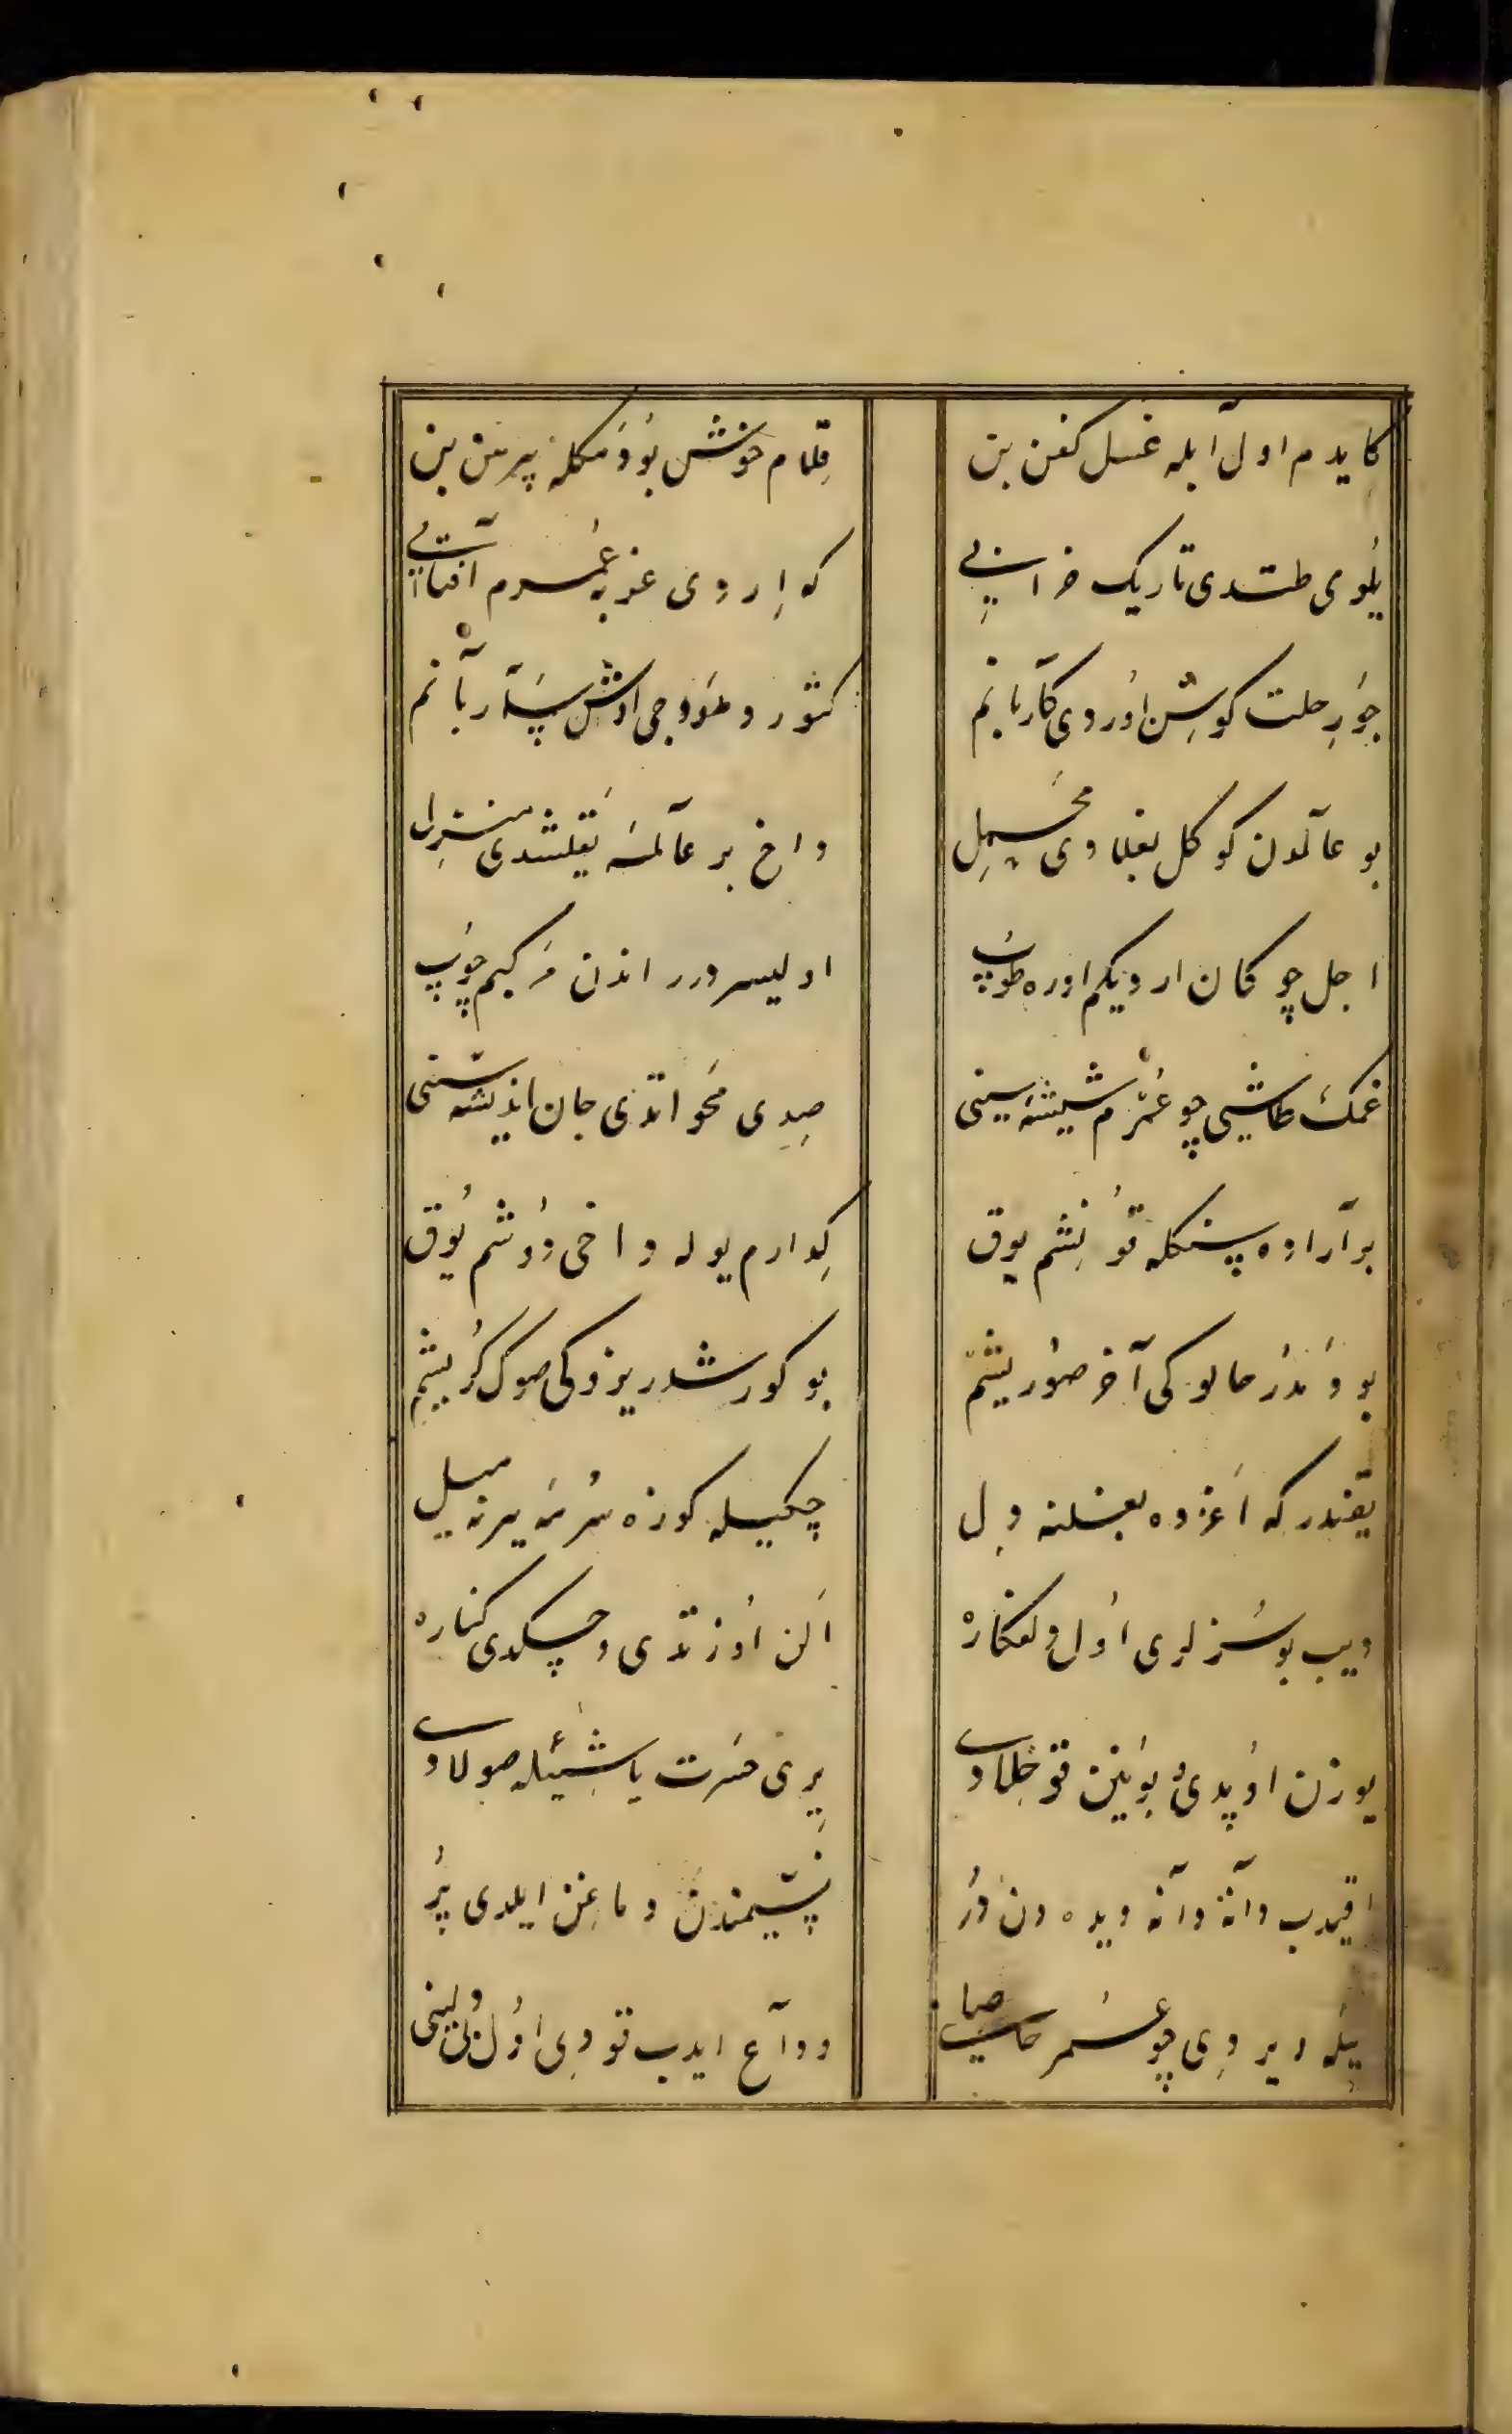 كیدم اول آبله غسل كفن بن قلام خوش بو دمكله پیرهن بن
یلوی طتدی تاریك خرابی كه اردی غربه عمرم آفتابی
چو رحلت كوسن اوردی كاربانم
بو عالمدن كوكل بغلادی محمل داخ بر عالمه یقلشدی منزل
اجل چوكان اردیكم اوره طوپ اولیسردر اندن مركبم چوپ
غمك طاشی چو عمرم شیشه سینی صدی محو اتدی جان اندیشه سنی
بر آراده سنكله قونشم یوق كدارم یوله داخی دونشم یوق
بو دمدر حالوكی آخر صوریشم بو كورشدر یزوكی صوك كریشم
یقندر كه اغزده بغلنه دل چكیله كوزه سرمه یرنه میل
دیب بو سزلری اول دلفكاره الن اوزتدی و چكدی كناره
یوزن اوپدی بوینن قوجلادی یری حسرت یاشیله صولادی
اقیدب دانه دانه دیده دن در نسیمندن دماغن ایلدی پر
یله ویردی چو عمر حاصلینی وداع ایدب قودی اول بلبلینی